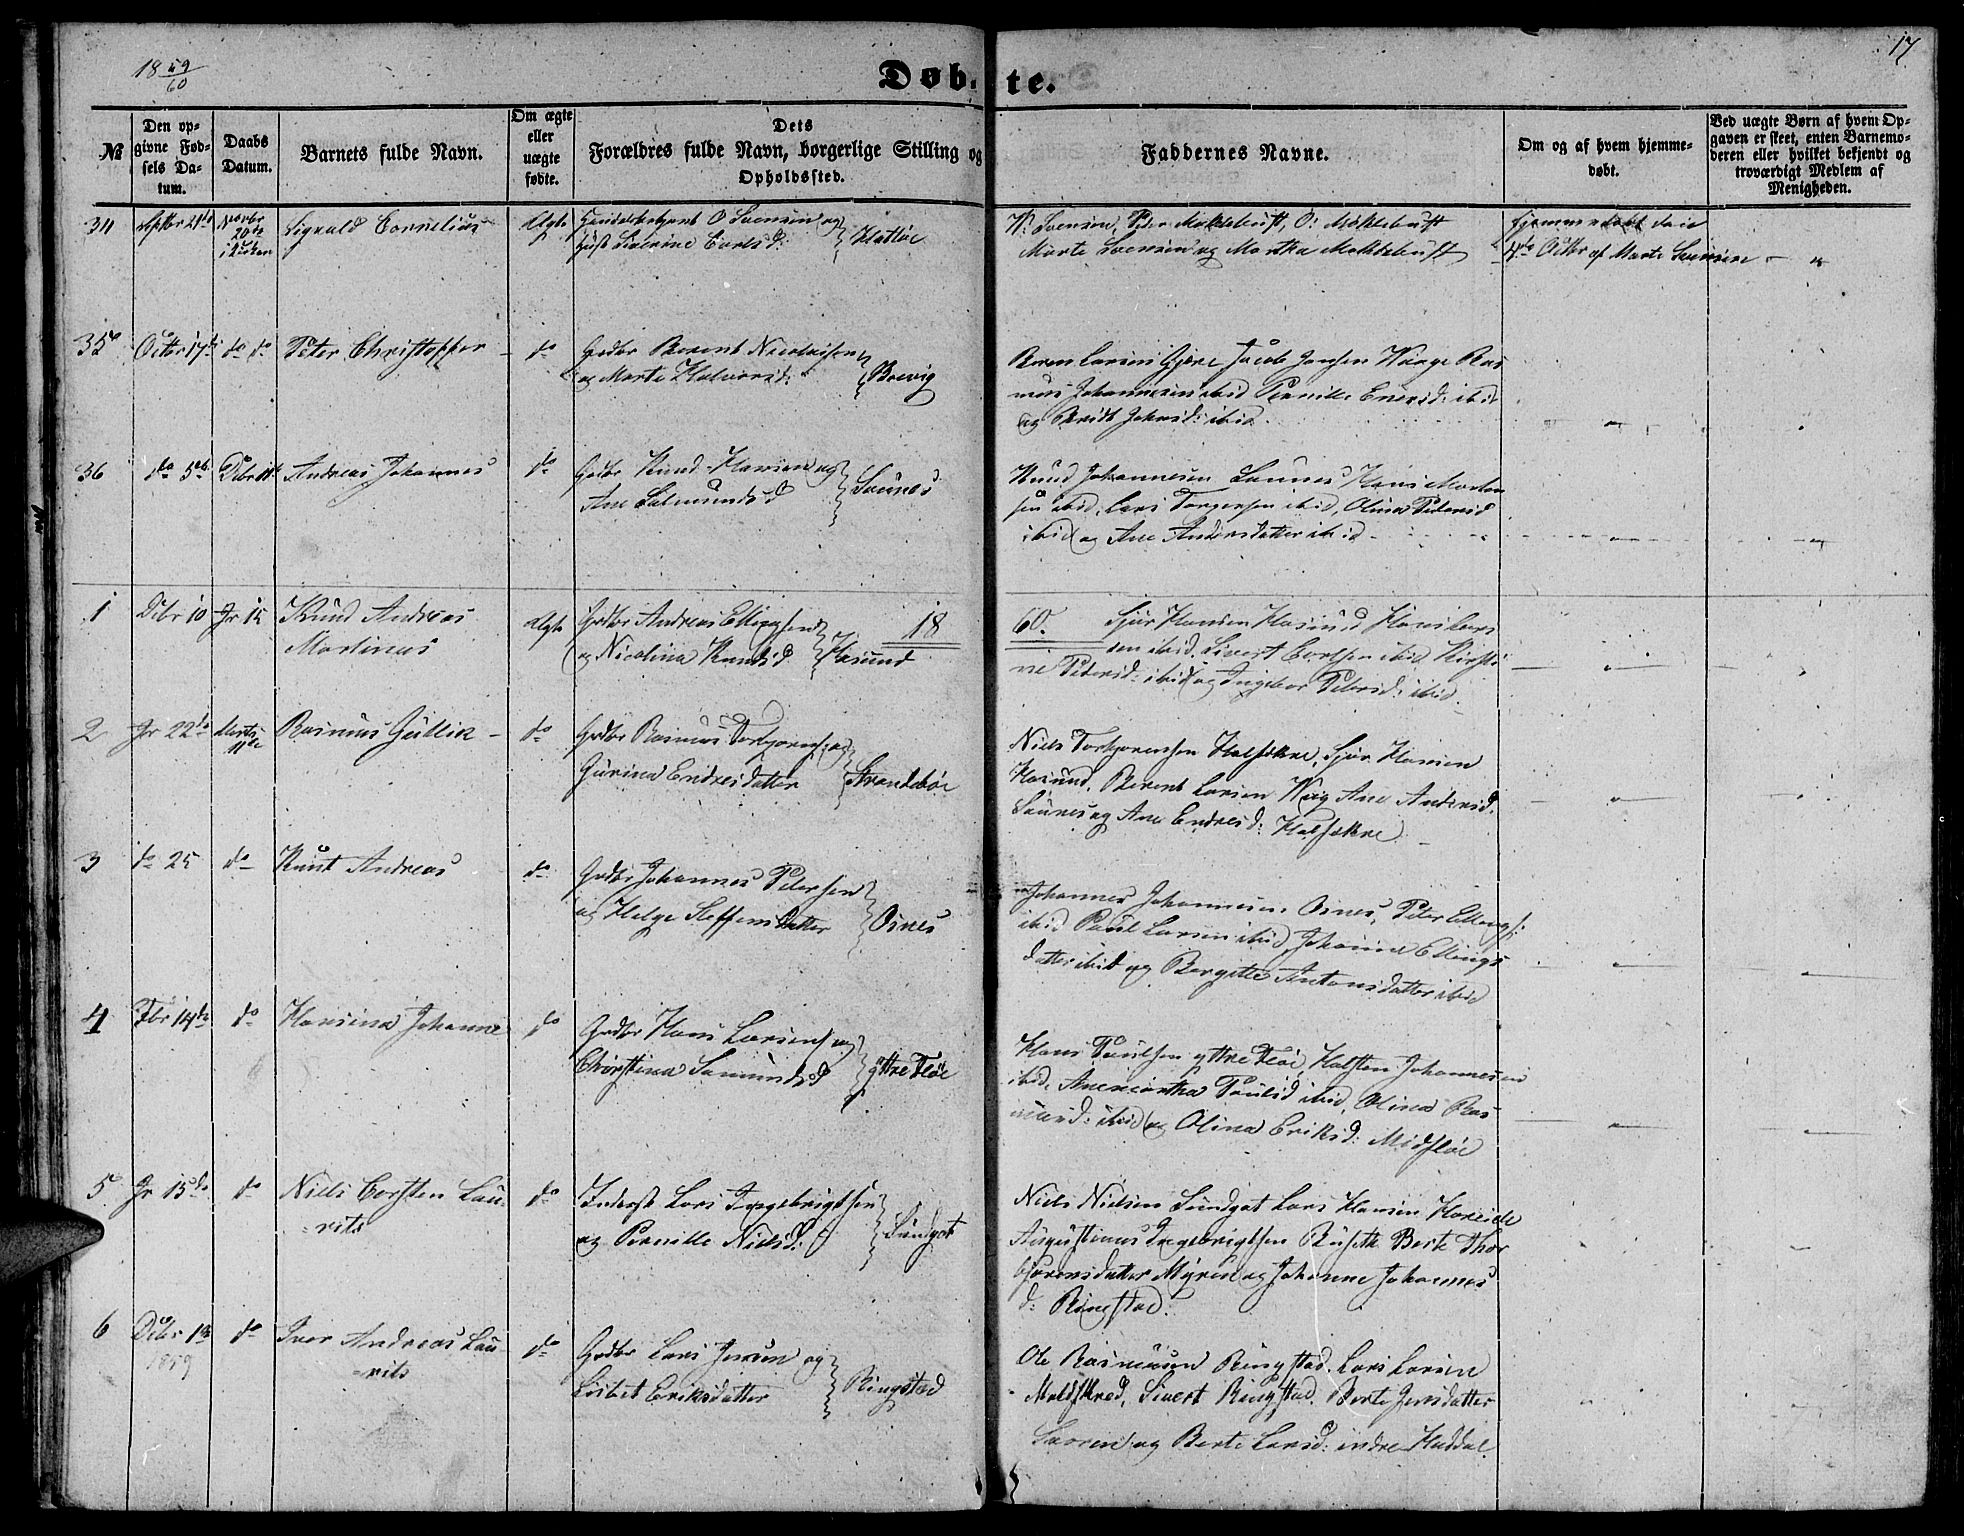 18 59/60
Døbte.
17
№
Den opgivne Fødsels Datum.
Daabs Datum.
Barnets fulde Navn.
Om ægte eller uægte fødte.
Dets Forældres fulde Navn, borgerlige Stilling og Opholdssted.
Faddernes Navne.
Om og af hvem hjemmedøbt.
Ved uægte Børn af hvem Opgaven er skeet, enten Barnemoderen eller hvilket bekjendt og troværdigt Medlem af Menigheden.
34
Novbr 20de i Kirken
Sigvald Cornelius
Ægte
O Svensen og
Severine Carlsd:
Hattøe
Svensen, Peder Moldebust, O: Moldebust
Marte Svensen og Martha Moldebust
hjemmedøbt
4de Octbr af Marte Svensen
35
Octbr 17de
do do
Peter Christoffer
do
Grdbr Berent Nicolaisen
og Marte Halvorsd:
Brevig
Jacob Jansen Ras-
mus Johannesen ibid Pernille ibid
og Berith Johnsd: ibid
36
do 5te
Andreas Johannes
do
Grdbr Knud Hansen og
Ane
Saunes
Knud Johannesen Saunes Hans Morten-
sen ibid, Lars Torgersen ibid, Olina Petersd
ibid og Ane Andersdatter ibid
1
Dcbr 10
Jr 15
Knud Andreas
Martinus
Ægte
Grdbr Andreas Ellingsen
og Nicolina Knudsd
Hasund
18
60.
Sjur Hansen Hasund Hans Lars-
sen ibid. Sivert Carlsen ibid Kirsti-
ne Petersd: ibid og Ingebor Petersd: ibid.
2
Jr 22de
Marts 11te
Rasmus Gullik
do
Grdbr Rasmus og
Gurina Endresdatter
Strandabøe
Niels Torbjørnsen Sjur Hansen
Hasund, Berent Larsen Ane Andersd:
Saunes og Ane Endresd:
3
do 25
do
Knut Andreas
do
Grdbr Johannes Petersen
og Helge Steffensdatter
Osnes
Johannes Johannesen Osnes, Peter Ellings:
ibid Paul Larsen ibid, Johanne Ellings-
datter ibid og Bergitte Antonsdatter ibid
4
Fbr 14de
do
Hansina Johanne
do
Grdbr Hans Larsen og
Christina
yttre Fløe
Hans Paulsen yttre Fløe, Halsten Johannesen
ibid, Anemartha Paulsd ibid, Olina Ras-
musd: ibid og Olina Eriksd: Midfløe
5
Jr 15de
do
Niels Carsten Lau-
rits
do
Inderst Lars Ingebrigtsen
og Pernille Nielsd:
Sundgot
Niels Nielsen Sundgot Lars Hansen Hareide
Augustinus Ingebrigtsen Berte Thor-
bjørnsdatter Myren og Johanne Johannes-
d: Ringstad.
6
Dcbr
1859
do
Iver Andreas Lau-
rits
do
Grdbr Lars Jensen og
Lisbet Eriksdatter
Ringstad
Ole Rasmusen Ringstad. Lars Larsen
Sivert Ringstad. Berte Jensdatter
og Berte Larsd: indre Haddal